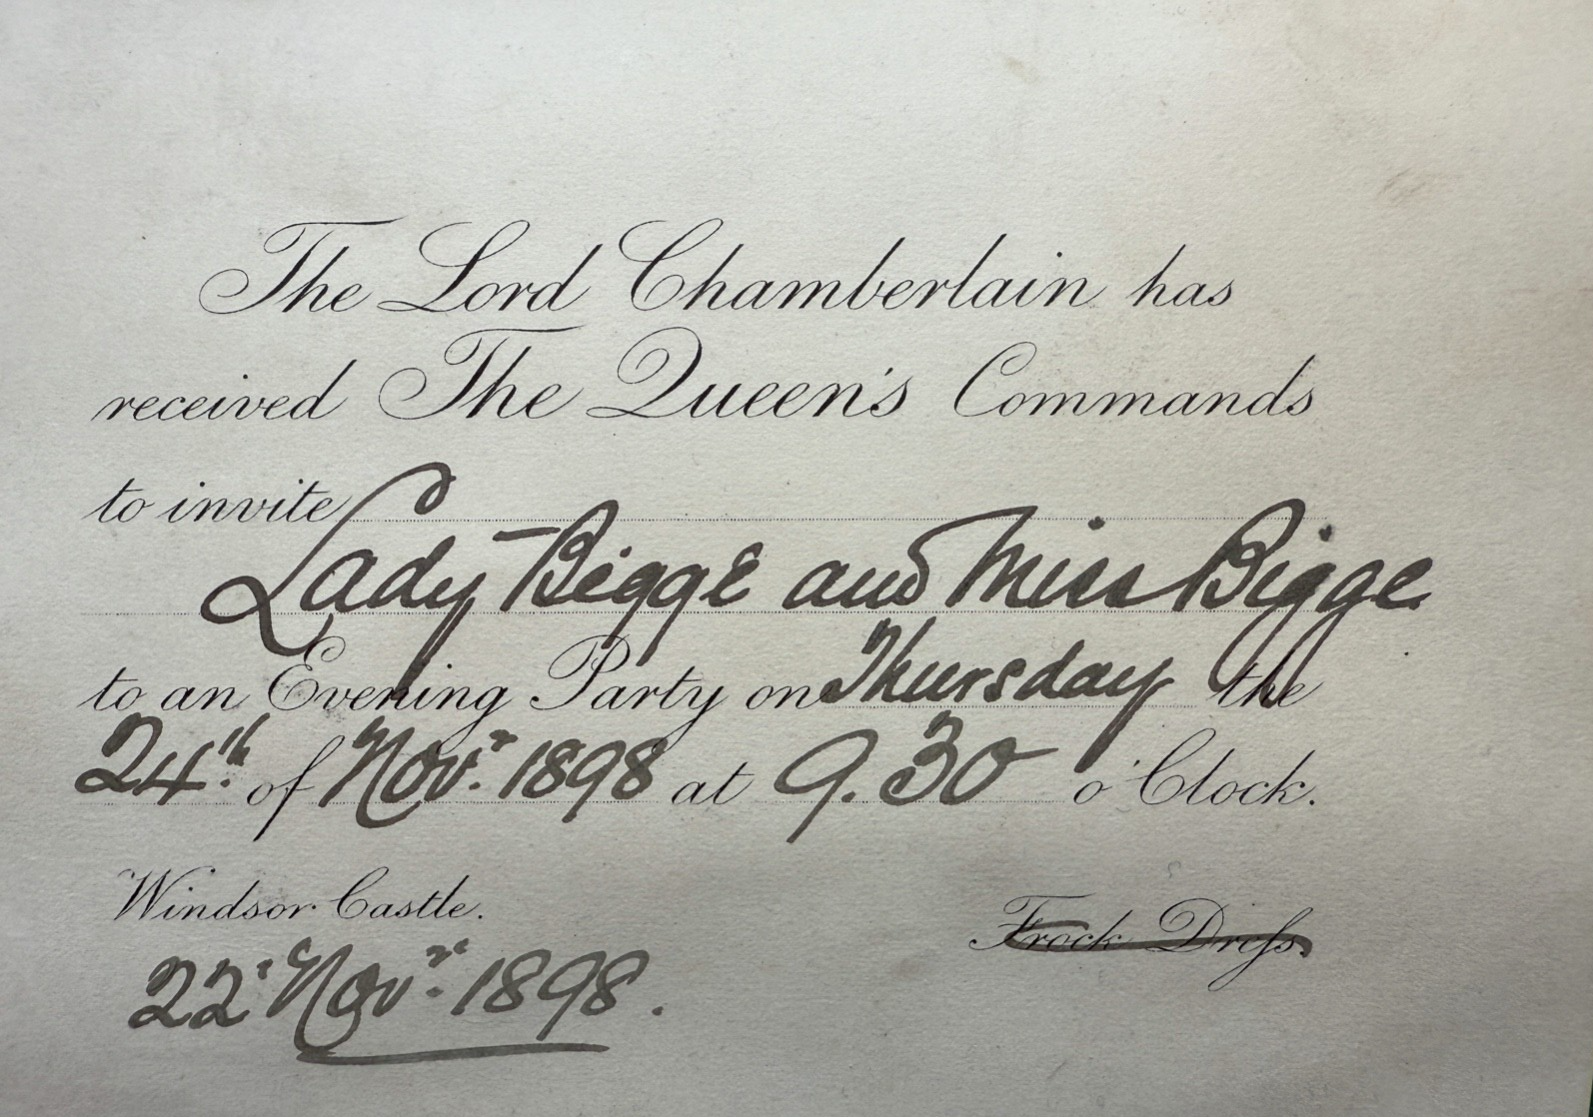 The Lord Chamberlain has
received The Queen's Commands
to invite
Lady Bigge and Miss Bigge.
to an Evening Party on Thursday the
24th. of Novr. 1898 at 9.30 o'Clock.
Windsor Castle.
Frock Dress.
22 Novr. 1898.